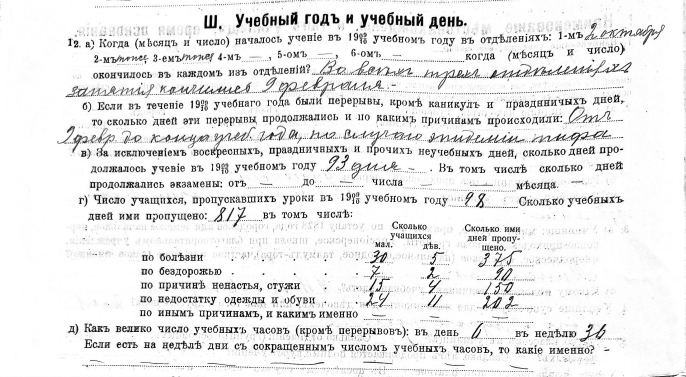 Ш. Учебный годъ и учебный день.
12. а) Когда (мѣсяцъ и число) началось ученіе въ 1909/10 учебномъ году въ отдѣленіяхъ: 1-мъ 2 октября
2-мъ тоже 3-емъ тоже 4-мъ — , 5-омъ — , 6-омъ — когда (мѣсяцъ и число)
окончилось въ каждомъ изъ отдѣленій? Во всѣхъ трехъ отдѣленіяхъ
занятія кончились 9 февраля -
б) Если въ теченіе 1909/10 учебнаго года были перерывы, кромѣ каникулъ и праздничныхъ дней,
то сколько дней эти перерывы продолжались и по какимъ причинамъ происходили: Отъ
9 февр до конца учеб. года, по случаю эпидеміи тифа
в) За исключеніемъ воскресныхъ, праздничныхъ и прочихъ неучебныхъ дней, сколько дней про-
должалось ученіе въ 1909/10 учебномъ году 93 дня - . Въ томъ числѣ сколько дней
продолжались экзамены: отъ — до — числа — мѣсяца. —
г) Число учащихся, пропускавшихъ уроки въ 1909/10 учебномъ году 98 Сколько учебныхъ
дней ими пропущено: 817 въ томъ числѣ:
Сколько учащихся Сколько ими дней пропу-
мал. дѣв. щено.
по болѣзни 30 5 375
по бездорожью 7 2 90
по причинѣ ненастья, стужи 15 4 150
по недостатку одежды и обуви 24 11 202
по инымъ причинамъ, и какимъ именно — — —
д) Какъ велико число учебныхъ часовъ (кромѣ перерывовъ): въ день 6 въ недѣлю 36
Если есть на недѣлѣ дни съ сокращеннымъ числомъ учебныхъ часовъ, то какіе именно? -